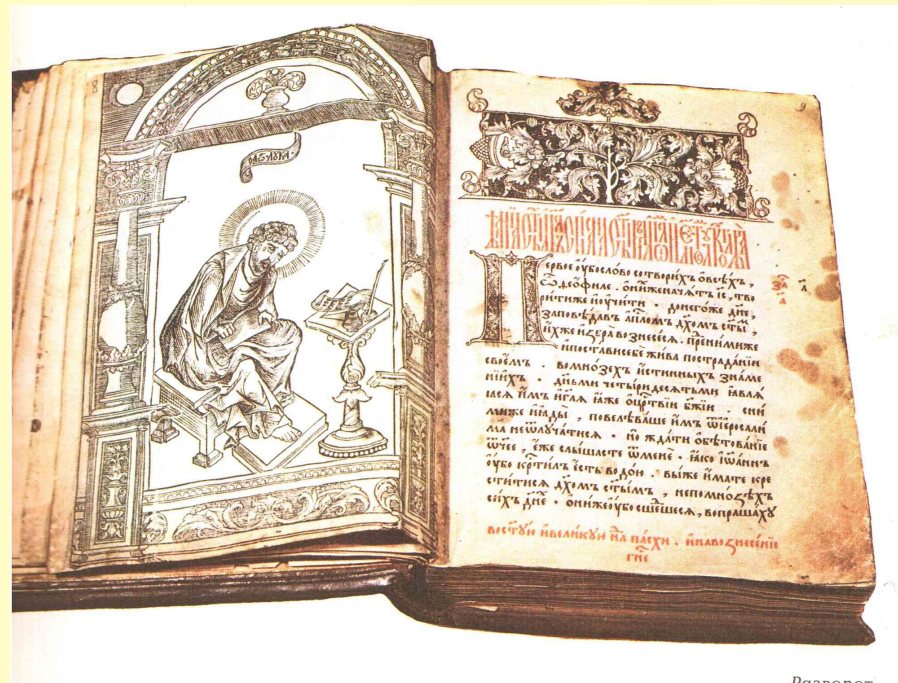 8
9
Перⷡ҇ое ᲂу҆бо сло́во сотвори́хъ ѡ҆всѣ́хъ,
ѽ деѡ҆́филе . ѡ҆ни́хже нача́тъ і҆с, тво
ри́тиже и҆ оу҆чи́ти до него́же дн҃е,
заповѣ́давъ а҆пⷭ҇ломъ дх҃омъ ст҃ы́ ,
и҆́хже и҆ꙁбра̀ воꙁнесеся . пре́ни́миже
и҆ поста́ви себе жи́ва по страда́нїи
свое́мъ . во мно́ꙁехъ и҆́стинныхъ зна́ме
нїи́хъ . дн҃ьми четы́ридесятьми ꙗ҆влѧ́
ꙗсѧ и҆̀мъ и҆ гл҃ѧ ꙗ҆́же ѡ҆ црⷭ҇твїи бж҃їи . сни́
миже и҆ ꙗ҆ды̀ , повелѣва́ше и҆̀мъ ѿ і҆еросали́
ма не ѿлуча́тисѧ . но жда́ти ѡ҆бѣтова́нїе
ѿч҃ее , е҆́же слы́шасте ѿ менѐ . ꙗ҆́ко і҆ѡ҆а́ннъ
оу҆́бо крⷭ҇ти́лъ е҆́сть водо́ю . вы́же и҆́мате кре
сти́тисѧ дх҃омъ ст҃ы́мъ , не по мно́ꙁѣхъ
си́хъ дн҃е . ѡ҆ни́же оу҆́бо сше́дшесѧ , вопраша́ху
во ст҃ую и҆ вели́кую нⷣл҃ю па́схи . и҆ на воꙁнесе́нїе
гн҃е
Разворот